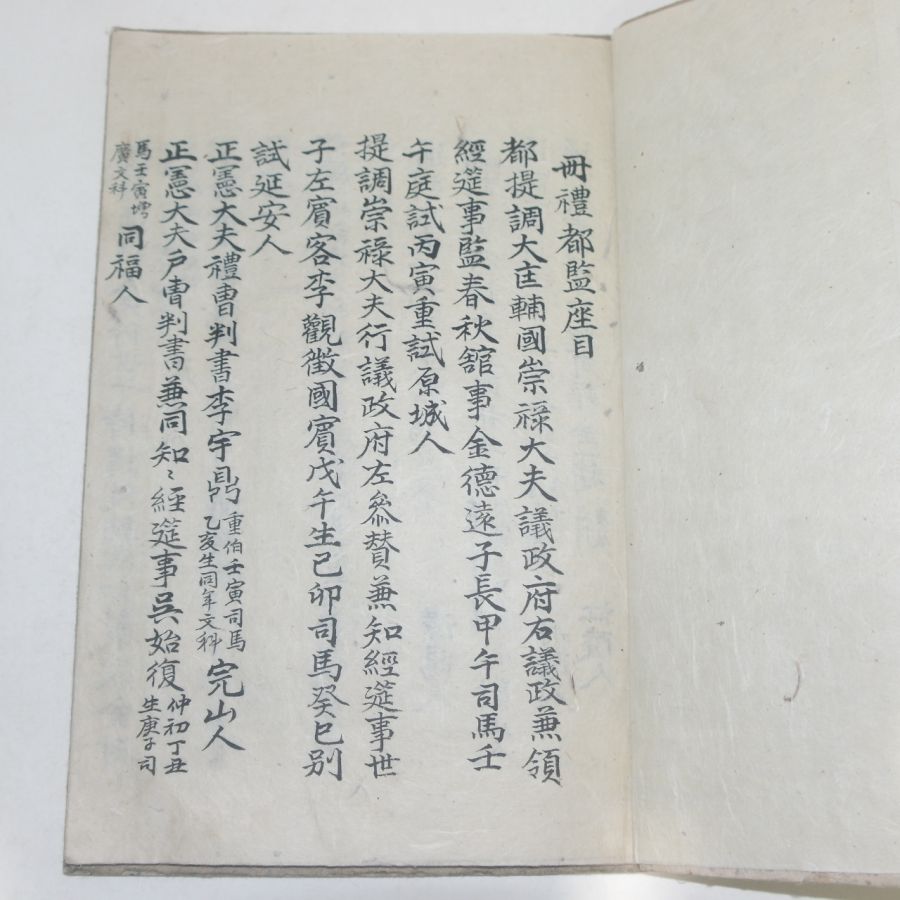 冊禮都監座目
都提調大匡輔國崇祿大夫議政府右議政兼領
經筵事監春秋舘事金德遠子長甲午司馬壬
午庭試丙寅重試原城人
提調崇祿大夫行議政府左叅賛兼知經筵事世
子左賓客李觀徵國賓戊午生己卯司馬癸巳別
試延安人
正憲大夫禮曹判書李宇鼎重伯壬寅司馬
乙亥生同年文科完山人
正憲大夫戶曹判書兼同知〻經筵事吳始復仲初丁丑
生庚子司
馬壬寅增
廣文科同福人